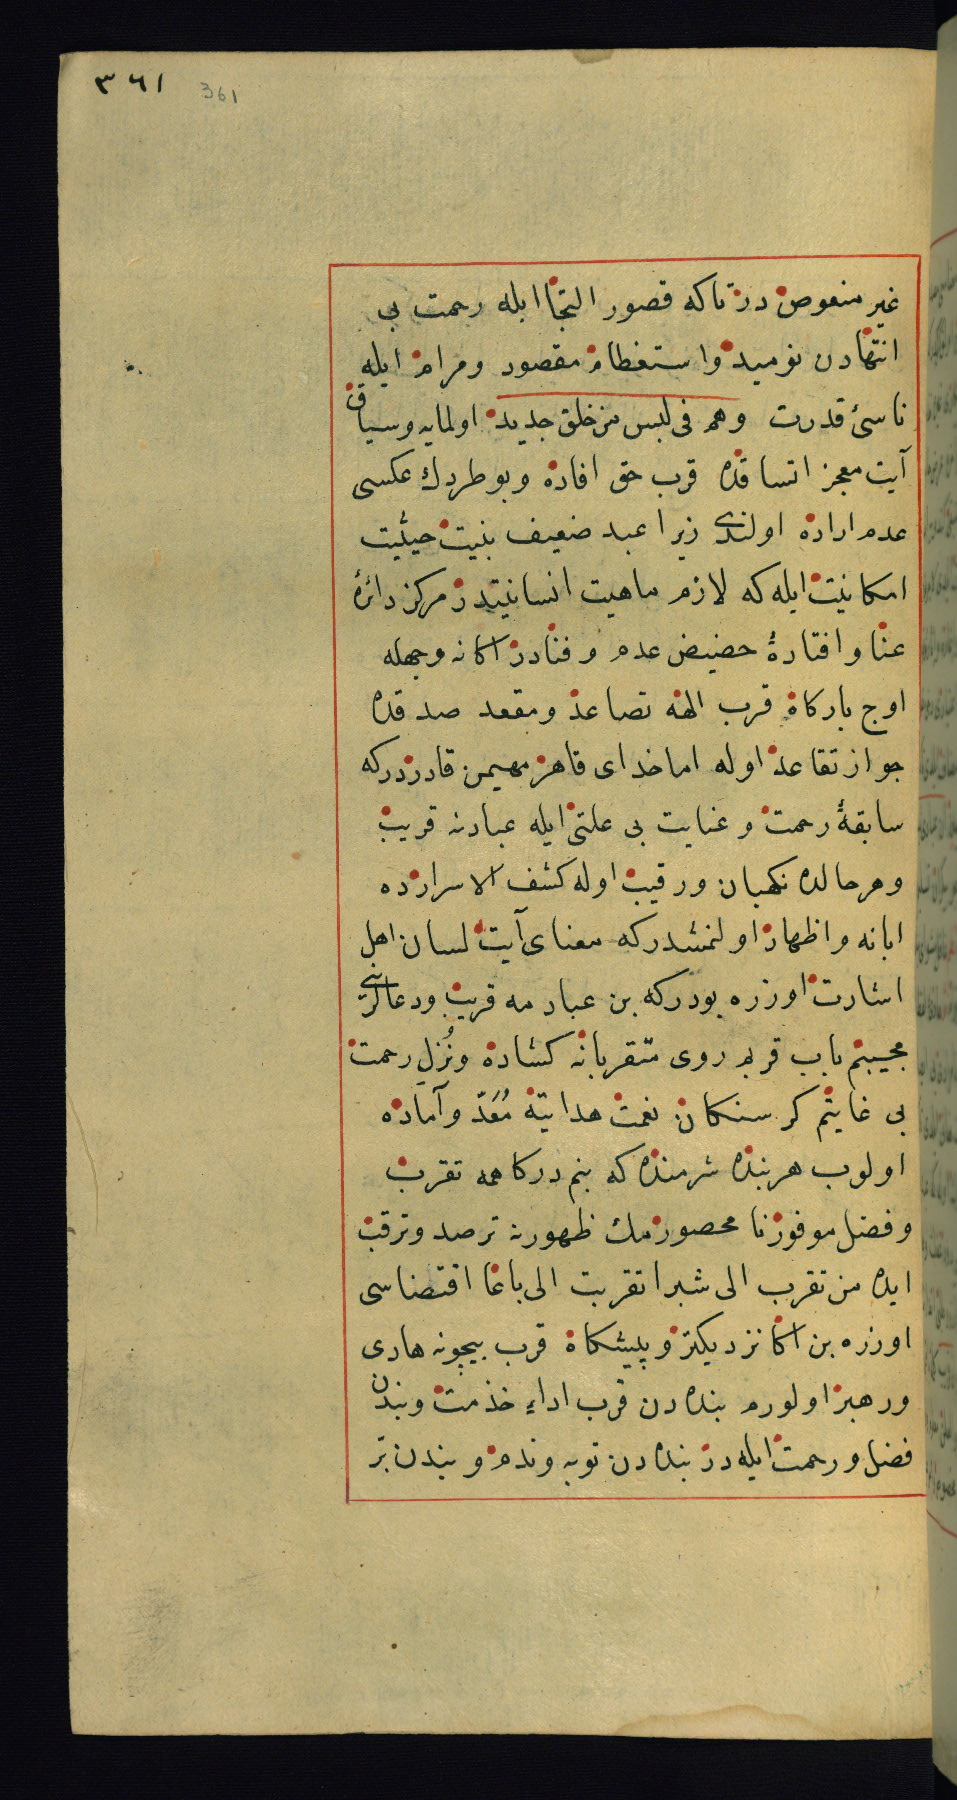 ٣٦١ 361
غير منعوص در تا كه قصور التجا ايله رحمت بى
انتهادن نوميد واستعظام مقصود ومرام ايله
ناسئ قدرت وهم فى لبس من خلق جديد اولمايه وسياق
آيت معجز اتساقده قرب حق افاده وبو طردك عكسى
عدم اراده اولندى زيرا عبد ضعيف بنيت حيثيت
امكانيت ايله كه لازم ماهيت انسانيتدر مركز دائرهٔ
عنا وافتادهٔ حضيض عدم وفنادر اكا نه وجهله
اوج باركاه قرب الهه تصاعد ومقعد صدقده
جواز تقاعد اوله اما خداى قاهر مهيمن قادردركه
سابقهٔ رحمت وعنايت بى علتى ايله عبادنه قريب
وهر حالده نكهبان ورقيب اوله كشف الاسرارده
ابانه واظهار اولنمشدركه معناى آيت لسان اهل
اشارت اوزره بودركه بن عبادمه قريب ودعالرينى
مجيبم باب قربم روى متقربانه كشاده ونُزل رحمت
بى غايتم كرسنكان نعمت هدايته مُعَدّ وآماده
اولوب هر بنده شرمنده كه بنم دركاهمه تقرب
وفضل موفور نا محصورمك ظهورنه ترصد وترقب
ايده من تقرب الى شبرا تقربت الى باعا اقتضاسى
اوزره بن اكا نزديكتر و پيشكاه قرب بيچونه هادى
ورهبر اولورم بنده دن قرب اداء خدمت وبندن
فضل ورحمت ايله در بنده دن توبه وندم وبندن بّر